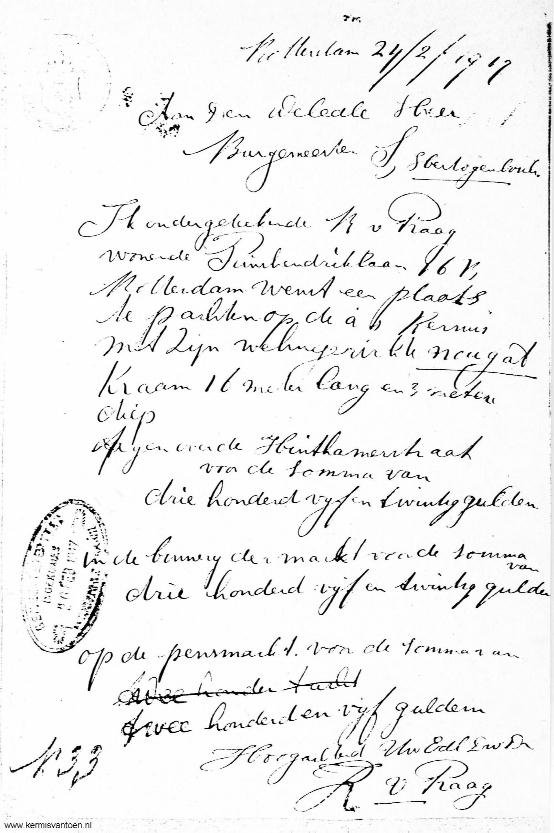 Rotterdam 24/2/1917
Aan den weledle Heer
Burgemeester S, Shertogenbosch
Ik ondergetekende R v Praag
wonende Prinshendriklaan 76
Rotterdam wenst een plaats
te pachten op de a s Kermis
met zijn nougat
Kraam 16 meter lang en 3 meter
diep
tegenover de Hinthamerstraat
voor de somma van
drie honderd vyf en twintig gulden
in de binnery der markt voor de somma
van
drie honderd vijf en twintig gulden
op de pensmarkt voor de somma van
twee honderd en vyf gulden
Hoogachtend Uw Edl
R v Praag
N 33
www.kermisvantoen.nl